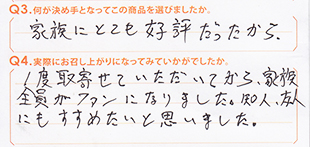 Q3.何が決め手となってこの商品を選びましたか。
家族にとても好評だったから、
Q4.実際にお召し上がりになってみていかがでしたか。
1度取寄せていただいてから、家族
全員がファンになりました。知人、友人
にもすすめたいと思いました。